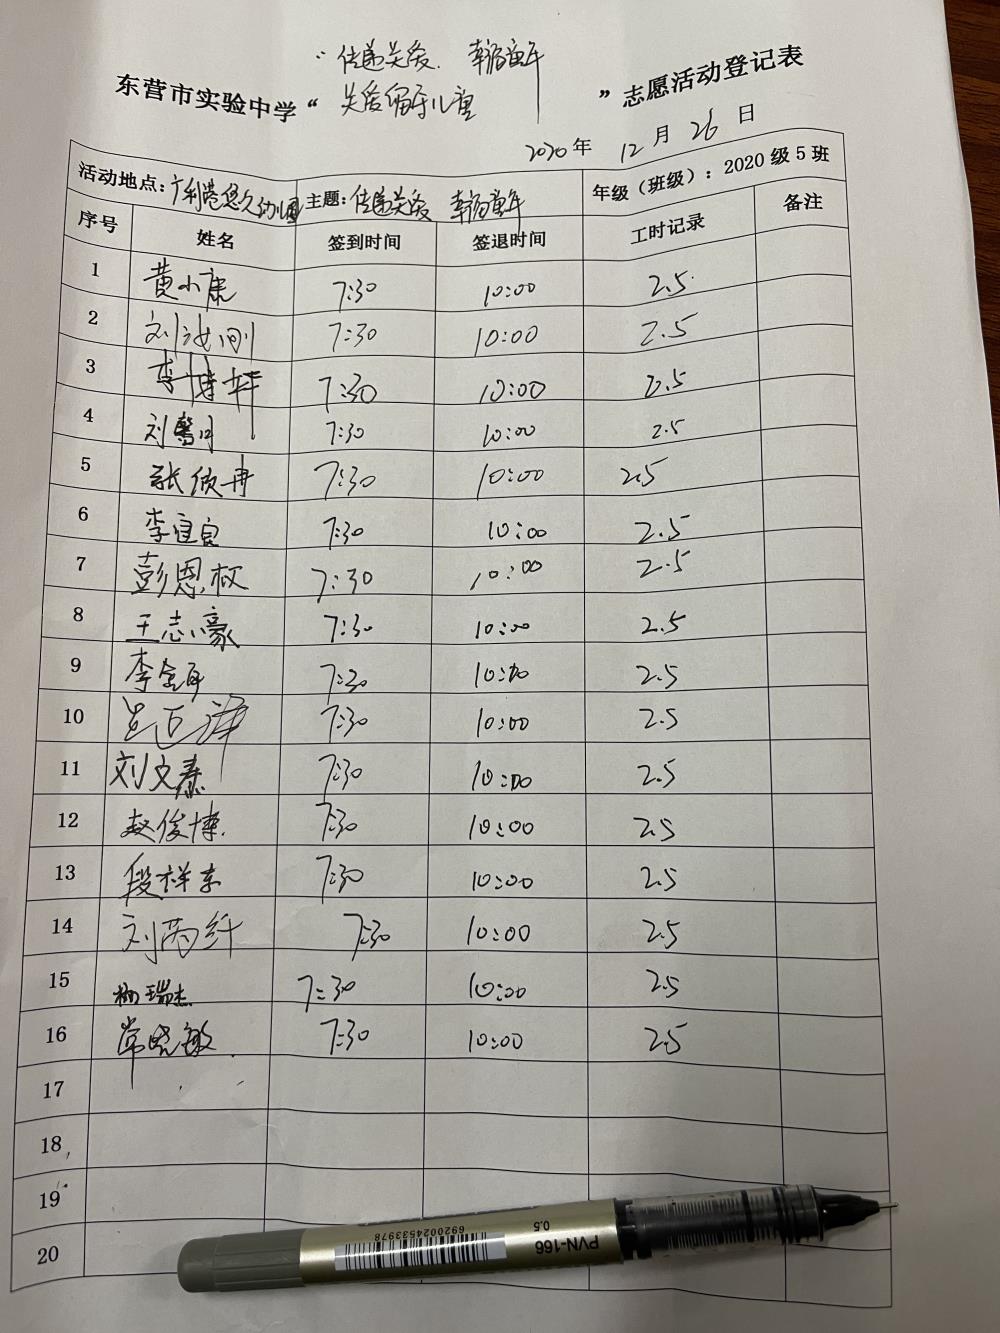 “传递关爱、幸福童年
东营市实验中学“ 关爱留守儿童 ”志愿活动登记表
2020年 12月 26日
活动地点：广利港悠久幼儿园 主题：传递关爱 幸福童年 年级（班级）：2020级5班
序号 姓名 签到时间 签退时间 工时记录 备注
1 黄小康 7:30 10:00 2.5
2 刘 刚 7:30 10:00 2.5
3 李博轩 7:30 10:00 2.5
4 刘馨月 7:30 10:00 2.5
5 张 冉 7:30 10:00 2.5
6 李宜良 7:30 10:00 2.5
7 彭恩权 7:30 10:00 2.5
8 王志豪 7:30 10:00 2.5
9 李 7:30 10:00 2.5
10 7:30 10:00 2.5
11 刘文泰 7:30 10:00 2.5
12 赵俊博 7:30 10:00 2.5
13 段祥东 7:30 10:00 2.5
14 刘芮纤 7:30 10:00 2.5
15 杨瑞杰 7:30 10:00 2.5
16 常晓敏 7:30 10:00 2.5
17
18
19
20
6920024533978
PVN-166
0.5